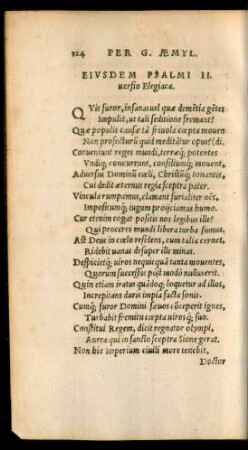 324 PER G. ÆMYL.
EIVSDEM PSALMI II.
uersio Elegiaca.
Qvis furor, insana uel quæ demētia gētes
Impulit, ut tali seditione fremant?
Quæ populis causæ tā friuola cœpta mouen
Non profecturi quid meditātur opus? (di.
Conueniunt reges mundi, terræq; potentes
Vndiq; concurrunt, consiliumq; mouent,
Aduersus Dominū cœli, Christūq; tonantis,
Cui dedit æternus regia sceptra pater.
Vincula rumpamus, clamant furialiter oēs,
Impositumq; iugum proijciamus humo.
Cur etenim cogat positis nos legibus ille?
Qui proceres mundi libera turba sumus.
Ast Deus in cœlo residens, cum talia cernet,
Ridebit uanas desuper ille minas.
Despicietq; uiros nequicquā tanta mouentes,
Quorum successus post modò nullus erit.
Quin etiam iratus quādoq; loquetur ad illos,
Increpitans duris impia facta sonis.
Cumq; furor Domini sæuos cōceperit ignes,
Turbabit fremitu cœpta uirosq; suo.
Constitui Regem, dicit regnator olympi,
Aurea qui in sancto sceptra Sione gerat.
Non hic imperium ciuili more tenebit,
Doctor